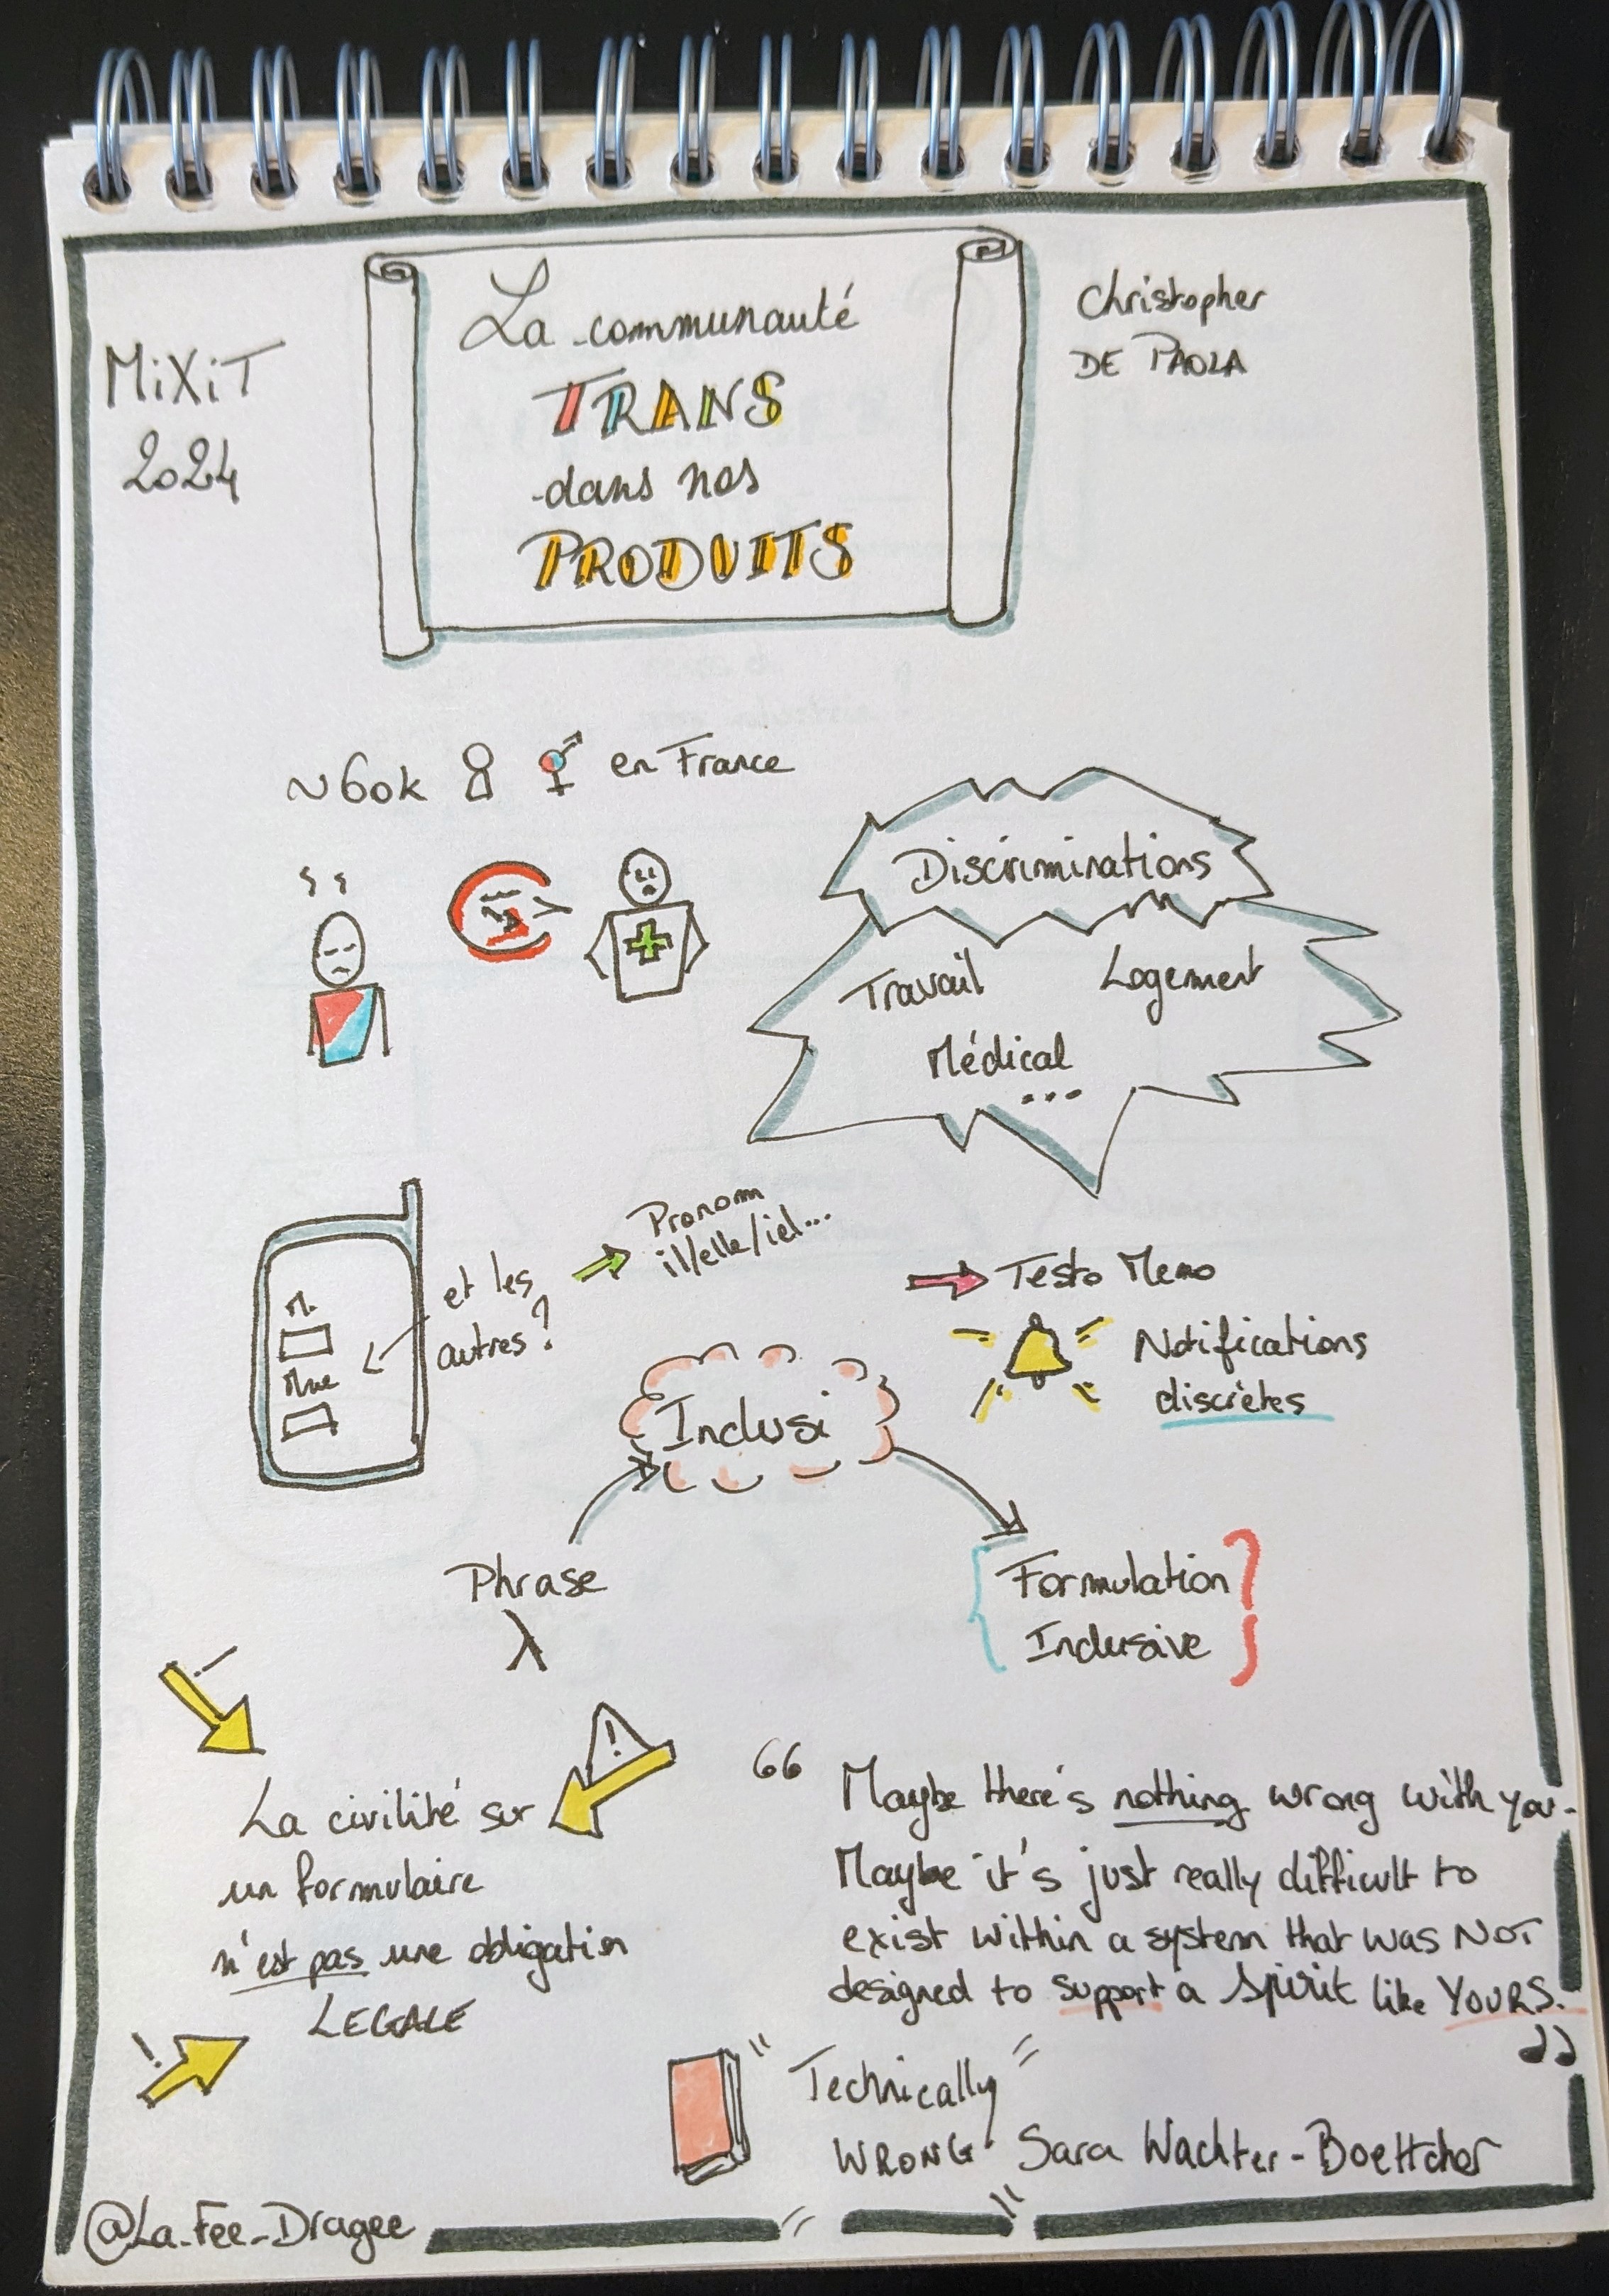 MiXiT
2024
La communauté
TRANS
dans nos
PRODUITS
Christopher
DE PAOLA
~60k
en France
Discriminations
Travail Logement
Médical
...
M.
Mme
et les
autres?
Pronom
il/elle/iel...
Testo Memo
Notifications
discrètes
Inclusi
Phrase
λ
Formulation
Inclusive
!
La civilité sur
un formulaire
n'est pas une obligation
LEGALE
!
66 Maybe there's nothing wrong with you.
Maybe it's just really difficult to
exist within a system that was NOT
designed to support a spirit like YOURS.
"Technically
WRONG" Sara Wachter-Boettcher
@La_Fee_Dragee